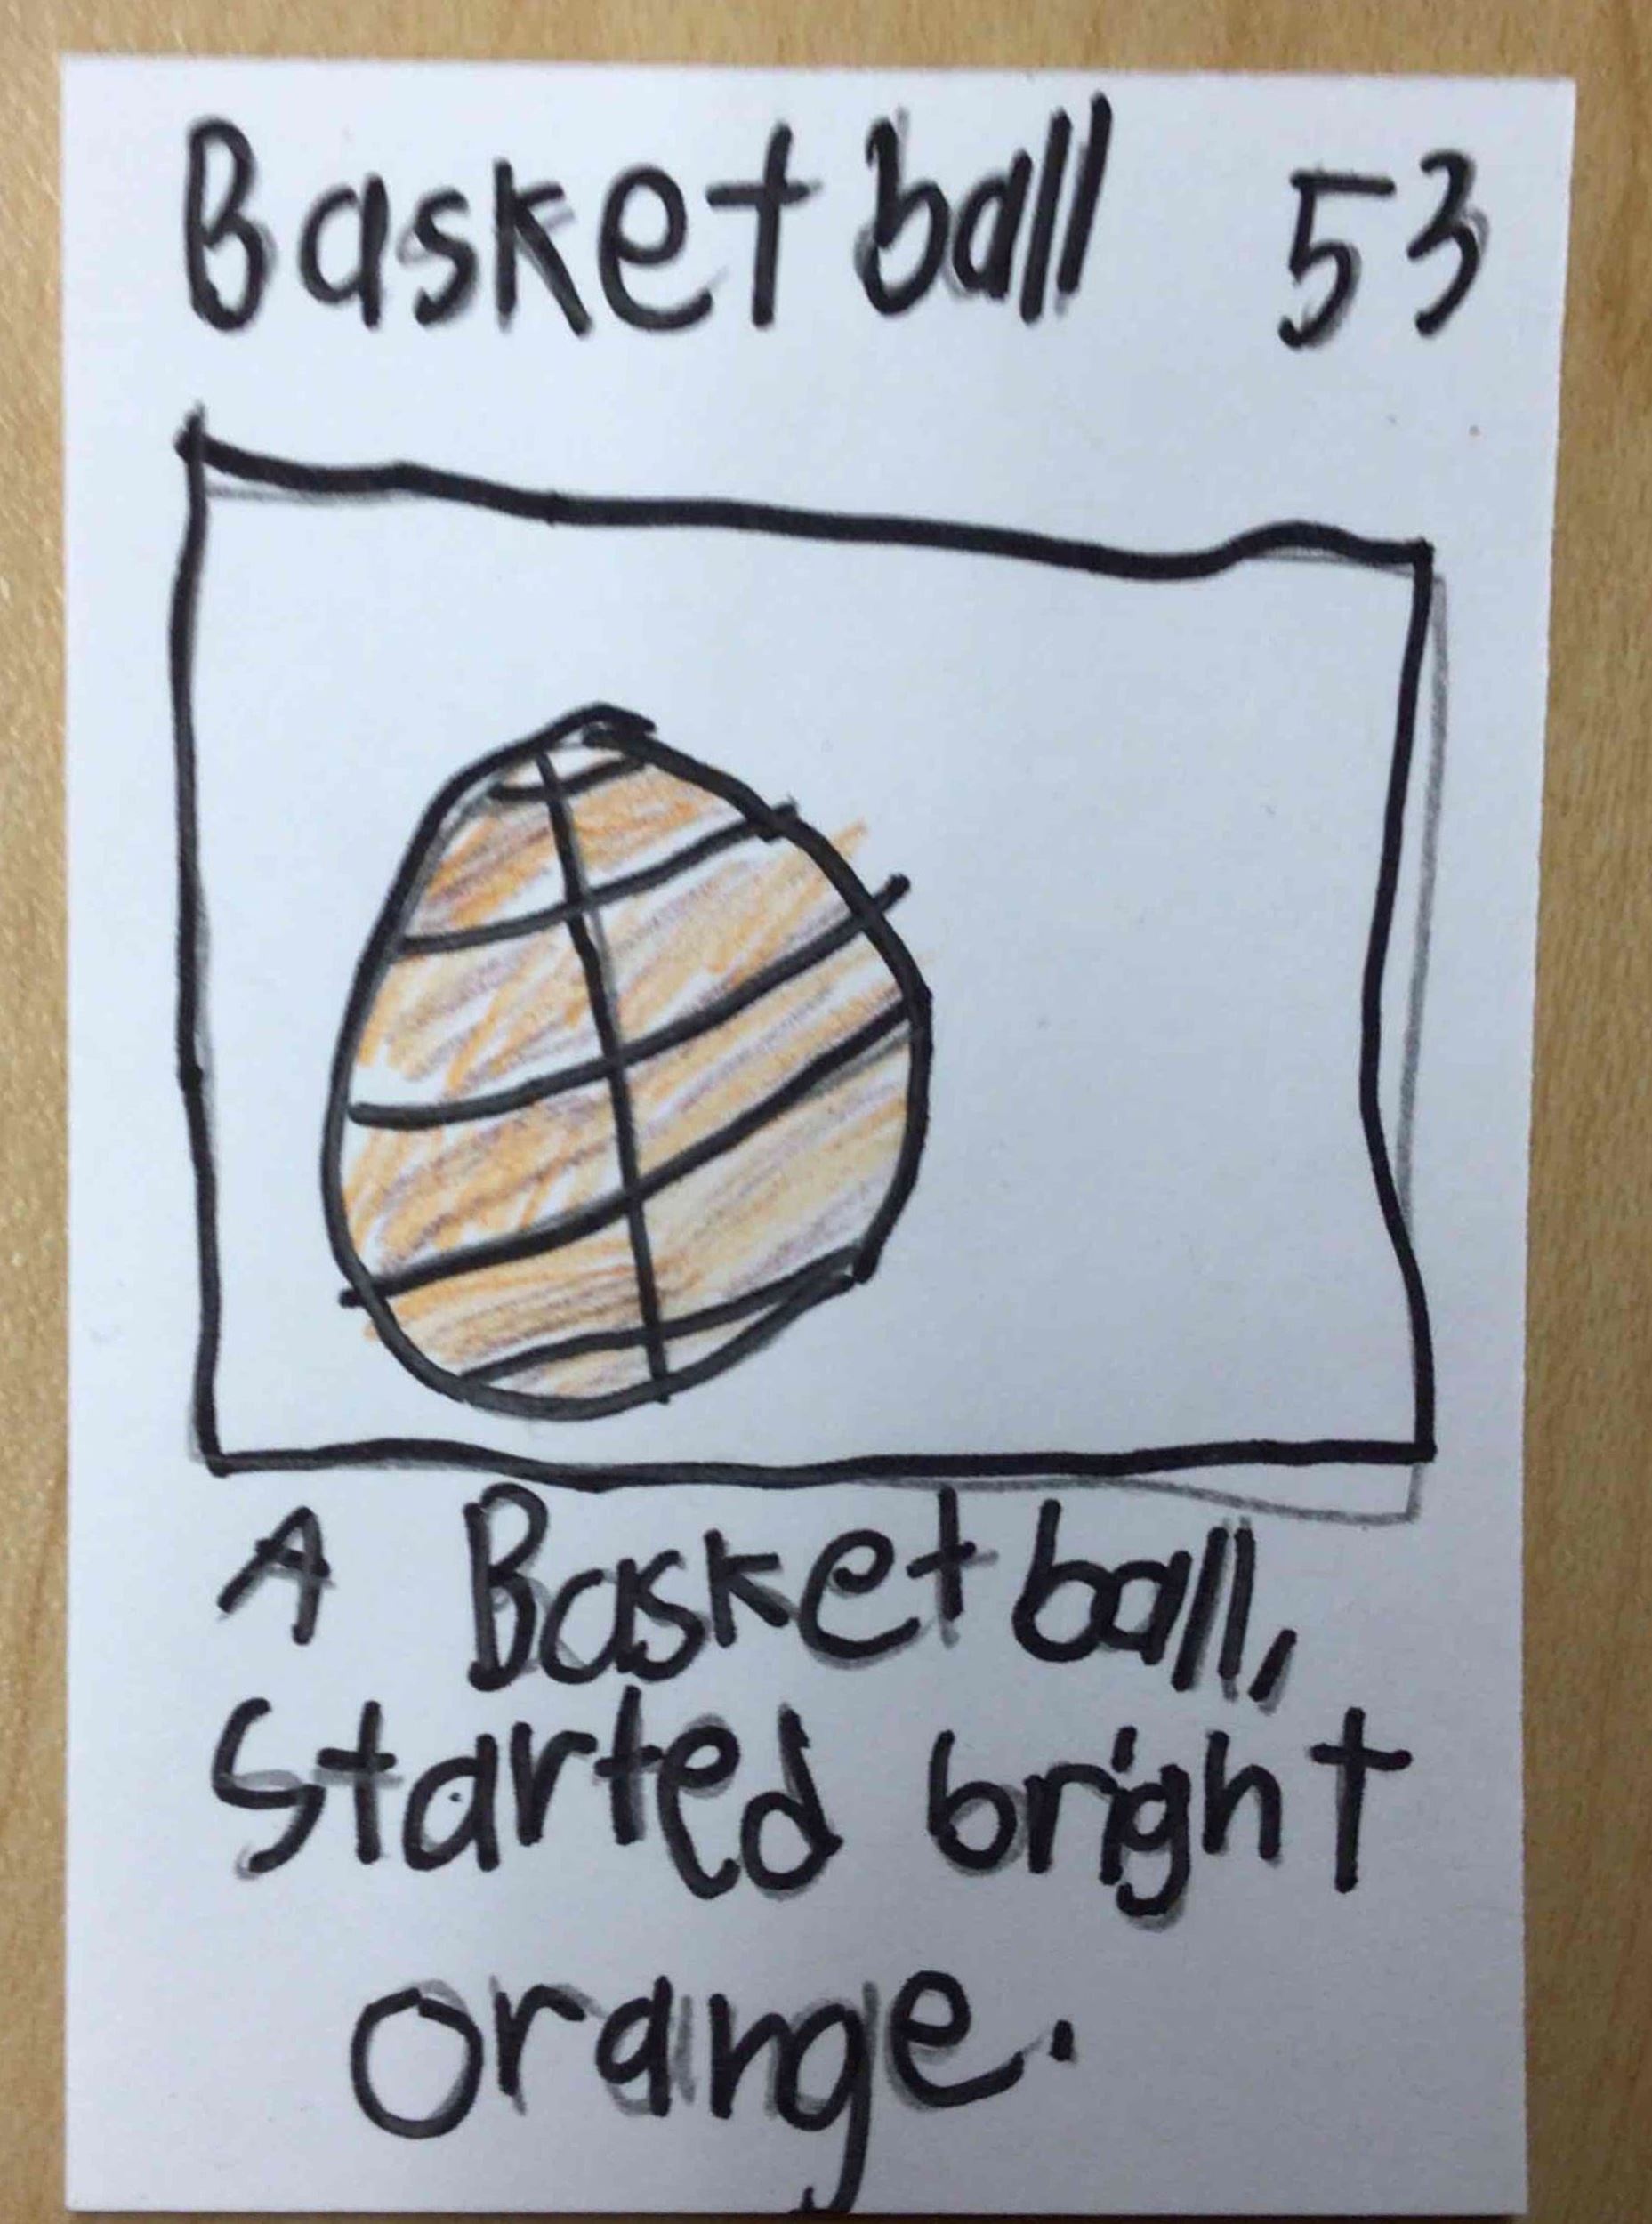 Basketball 53
A Basketball,
Started bright
orange.